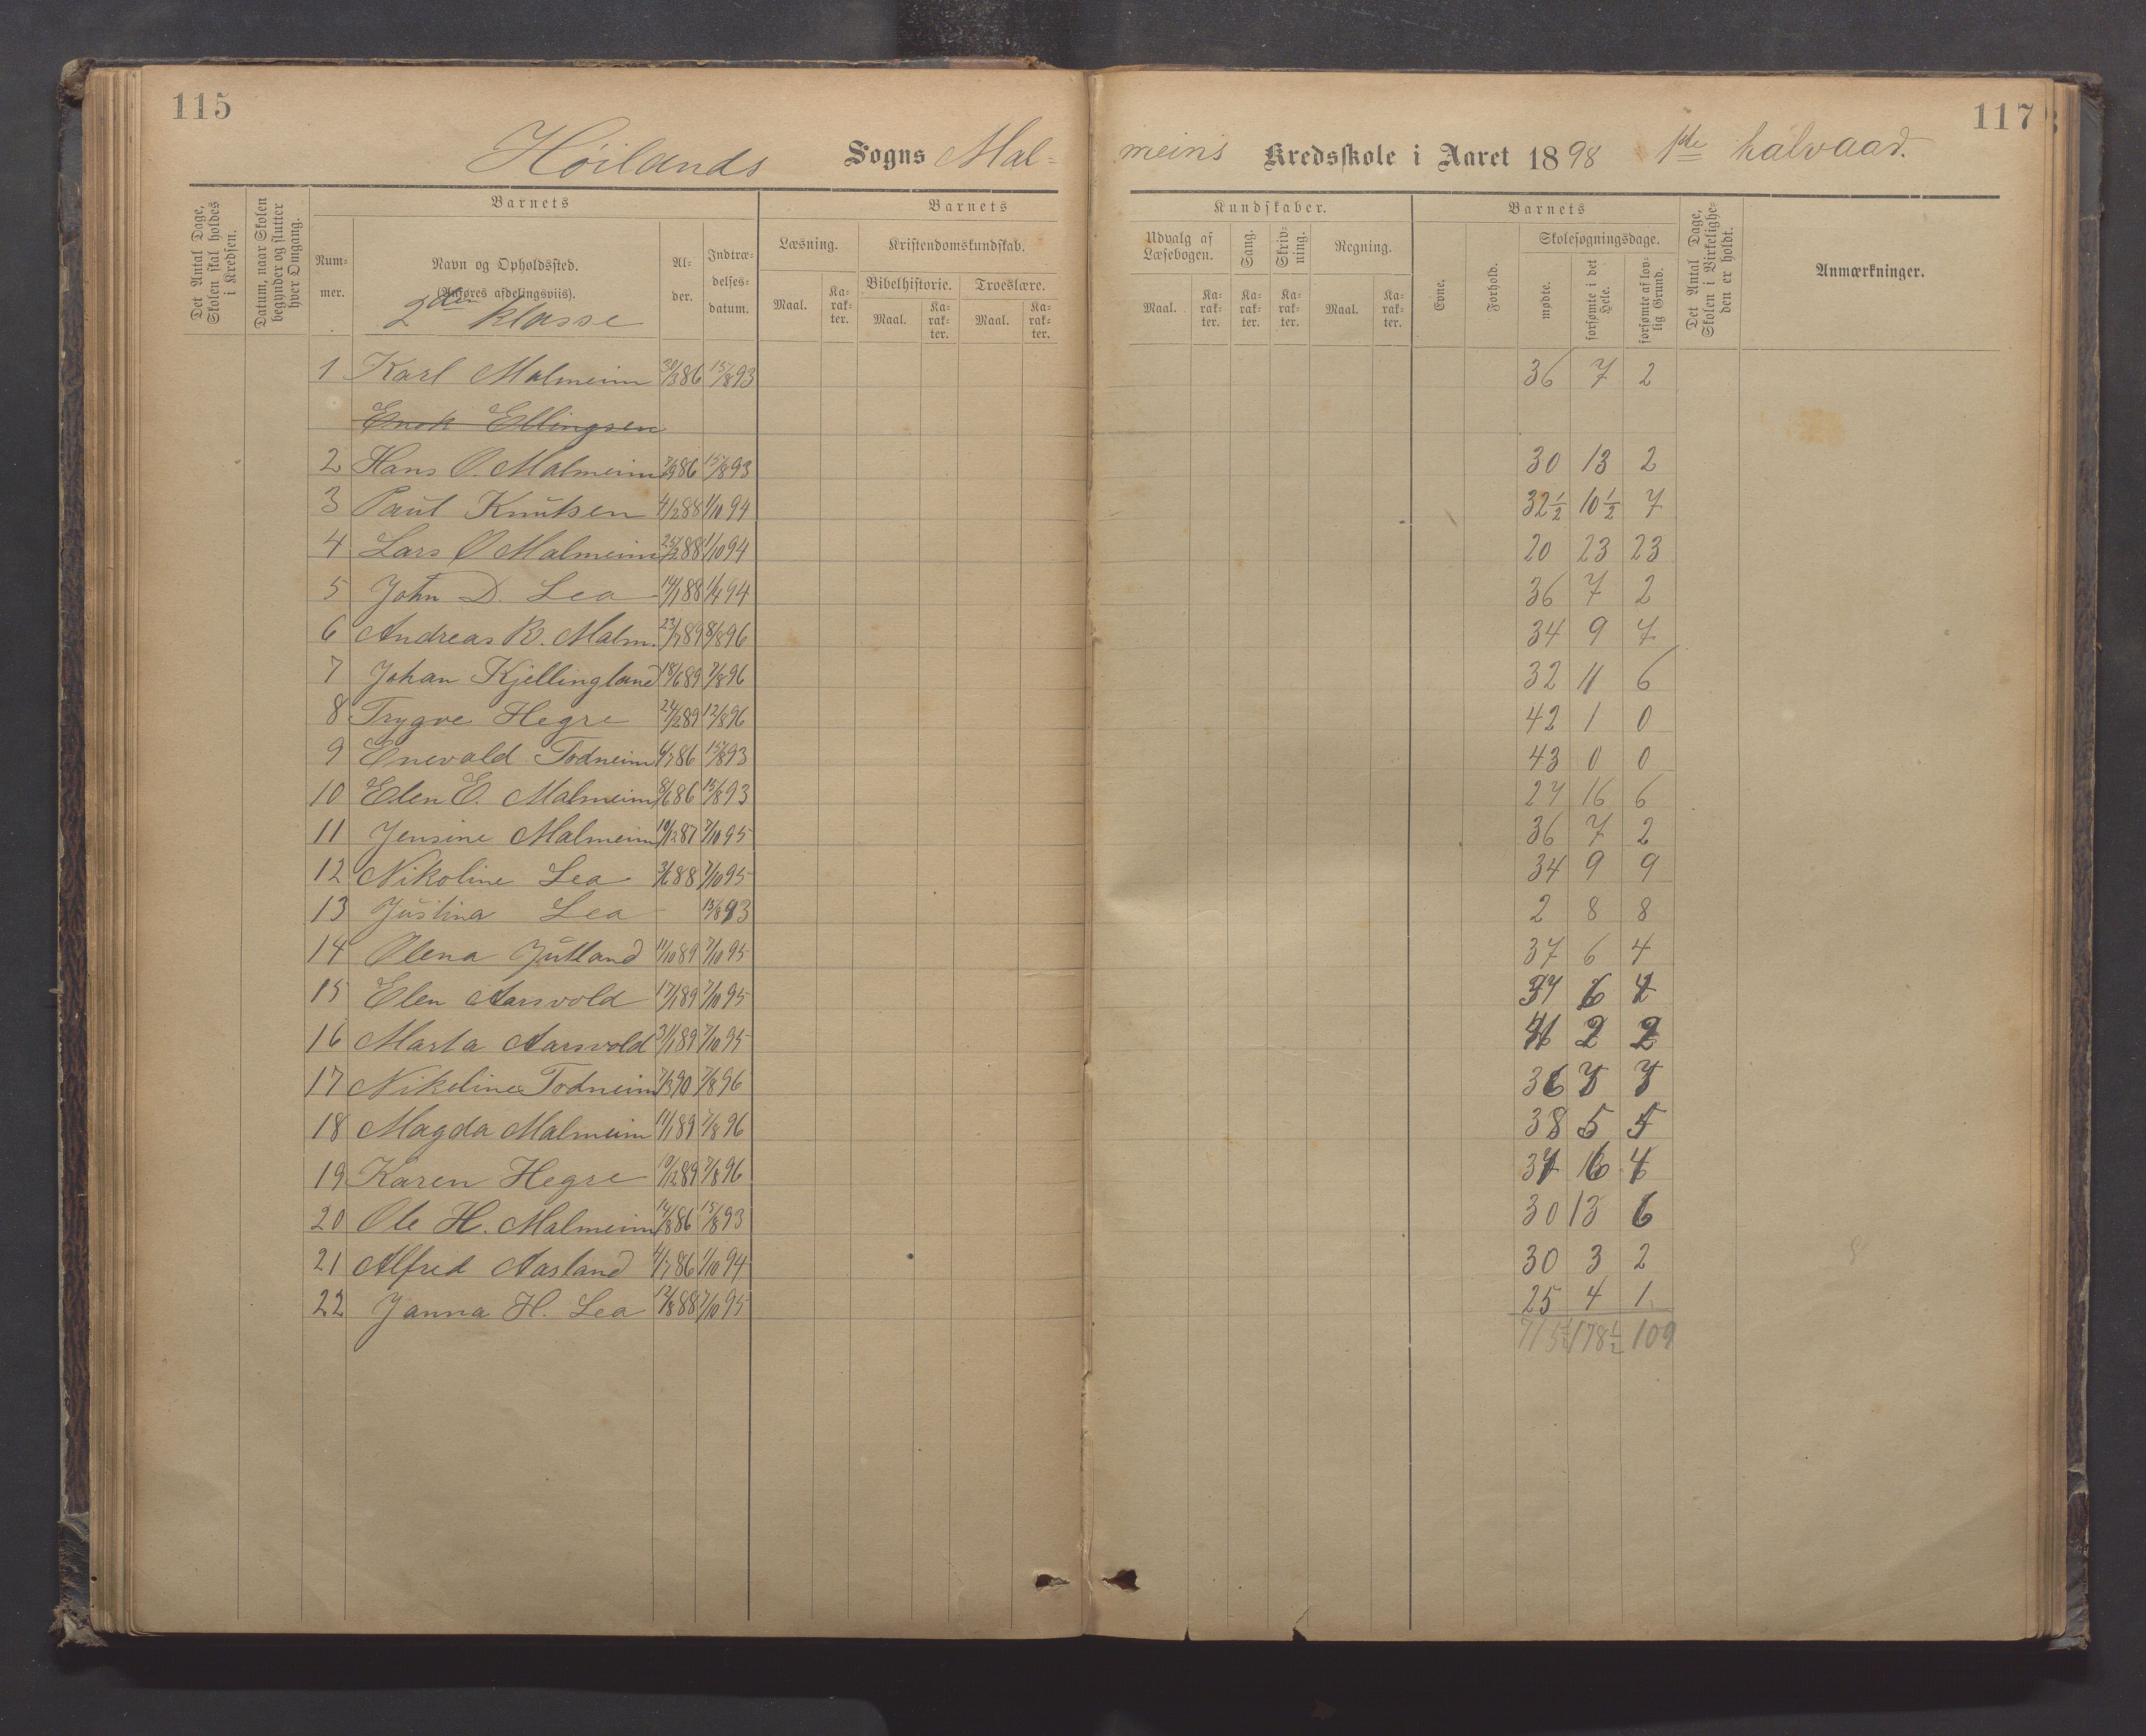 115
117
Höilands Sogns Malmeins Kredsskole i Aaret 1898 1ste halvaar.
Det Antal Dage, Skolen skal holdes i Kredsen.
Datum, naar Skolen begynder og slutter hver Omgang.
Barnets
Barnets
Kundskaber.
Barnets
Det Antal Dage, Skolen i Virkeligheden er holdt.
Anmærkninger.
Nummer.
Navn og Opholdssted.
(Anføres afdelingsviis).
Alder.
Indtrædelsesdatum.
Læsning.
Kristendomskundskab.
Udvalg af Læsebogen.
Sang.
Skrivning.
Regning.
Evne.
Forhold.
Skolesøgningsdage.
Bibelhistorie.
Troeslære.
Maal.
Karakter.
Maal.
Karakter.
Maal.
Karakter.
Maal.
Karakter.
Karakter.
Karakter.
Maal.
Karakter.
mødte.
forsømte i det Hele.
forsømte af lovlig Grund.
2den klasse
1 Karl Malmeim 30/3 86 15/8 93 36 7 2
Enok Ellingsen
2 Hans O. Malmeim 7/9 86 15/8 93 30 13 2
3 Paul Knutsen 4/2 88 1/10 94 32½ 10½ 7
4 Lars O Malmeim 25/2 88 1/10 94 20 23 23
5 John D. Lea 14/1 88 1/4 94 36 7 2
6 Andreas B. Malm. 23/7 89 8/8 96 34 9 7
7 Johan Kjellingland 18/6 89 7/8 96 32 11 6
8 Trygve Hegre 24/2 89 12/8 96 42 1 0
9 Enevald Todneim 6/7 86 15/8 93 43 0 0
10 Elen E. Malmeim 8/6 86 15/8 93 27 16 6
11 Jensine Malmeim 10/12 87 7/10 95 36 7 2
12 Nikoline Lea 3/6 88 7/10 95 34 9 9
13 Justina Lea 15/8 93 2 8 8
14 Olena Jutland 11/10 89 7/10 95 37 6 4
15 Elen Aarsvold 17/1 89 7/10 95 37 6 4
16 Marta Aarsvold 31/1 89 7/10 95 41 2 2
17 Nikeline Todneim 7/3 90 7/8 96 36 7 7
18 Magda Malmeim 11/1 89 7/8 96 38 5 5
19 Karen Hegre 10/12 89 7/8 96 37 6 4
20 Ole H. Malmeim 14/8 86 15/8 93 30 13 6
21 Alfred Aasland 4/7 86 1/10 94 30 3 2
22 Janna H. Lea 12/8 88 7/10 95 25 4 1
715½ 178½ 109